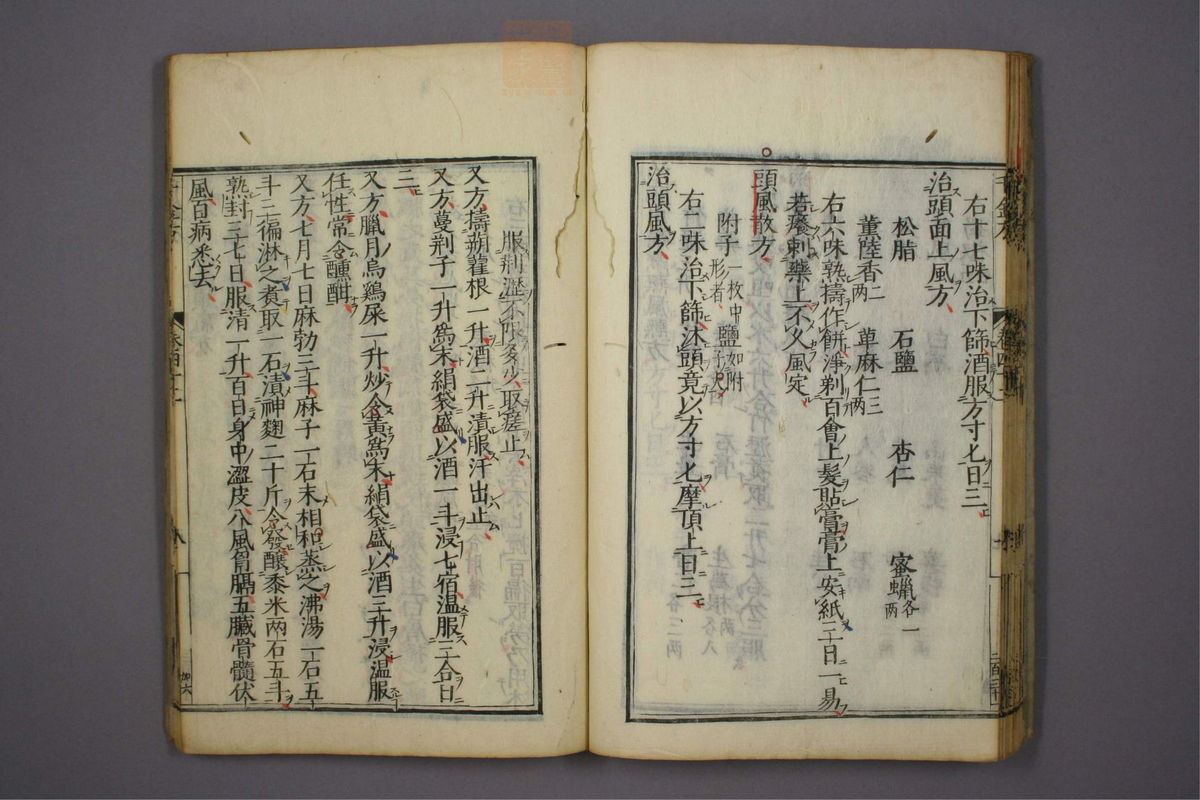 右十七味治下篩酒服方寸匕日三
治頭面上風方
松脂 石鹽 杏仁 蜜蠟各一兩
薰陸香二兩 萆麻仁三兩
右六味熟擣作餅淨剃百會上髮貼膏膏上安紙三日一易
若癢刺藥上不久風定
頭風散方
附子一枚中形者 鹽如附子大
右二味治下篩沐頭竟以方寸匕摩頂上日三
治頭風方
服荆瀝不限多少取瘥止
又方擣蒴藋根一升酒二升漬服汗出止
又方蔓荆子一升為末絹袋盛以酒一斗浸七宿溫服三合日
三
又方臘月烏鷄屎一升炒令黃為末絹袋盛以酒三升浸温服
任性常令醺酣
又方七月七日麻勃三斗麻子一石末相和蒸之沸湯一石五
斗三徧淋之煮取一石漬神麴二十斤令發釀黍米兩石五斗
熟封三七日服清一升百日身中澀皮八風胷膈五臟骨髓伏
風百病悉去